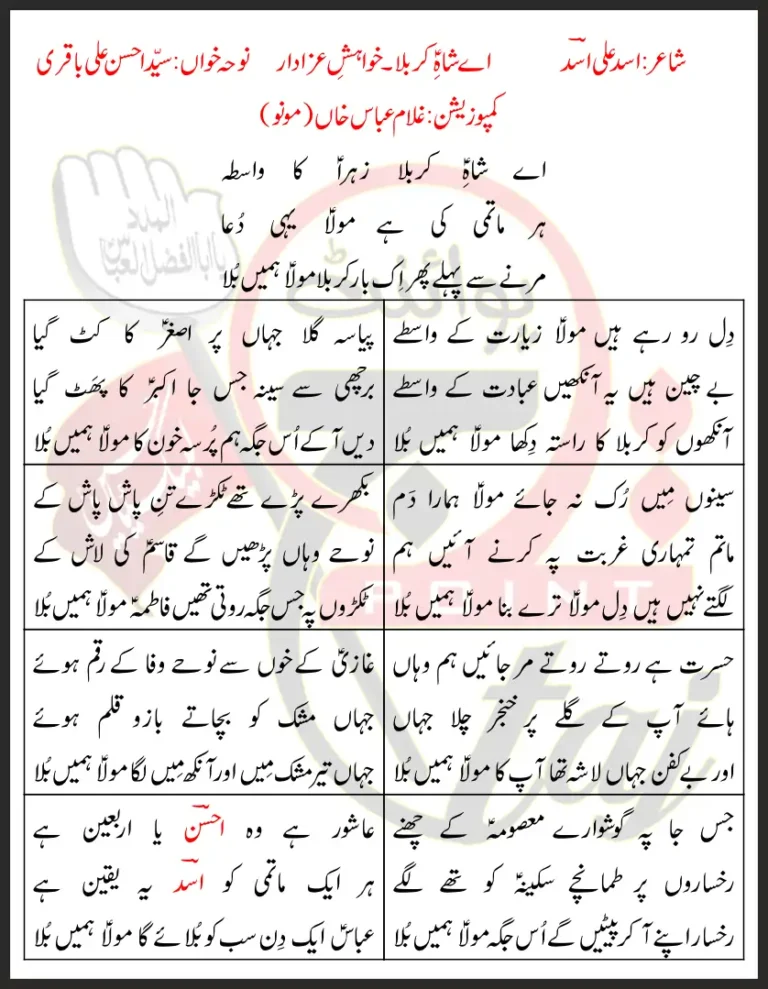 شاعر: اسد علی اسدؔ    اے شاہِؑ کربلا۔ خواہشِ عزادار    نوحہ خواں: سیّد احسن علی باقری
کمپوزیشن: غلام عباس خاں (مونو)
اے شاہِؑ کربلا زہراؑ کا واسطہ
ہر ماتمی کی ہے مولاؑ یہی دُعا
مرنے سے پہلے پھر اِک بار کربلا مولاؑ ہمیں بُلا
دِل رو رہے ہیں مولاؑ زیارت کے واسطے
بے چین ہیں یہ آنکھیں عبادت کے واسطے
آنکھوں کو کربلا کا راستہ دِکھا مولاؑ ہمیں بُلا
پیاسہ گلا جہاں پر اصغرؑ کا کٹ گیا
برچھی سے سینہ جس جا اکبرؑ کا پھَٹ گیا
دیں آ کے اُس جگہ ہم پُرسہ خون کا مولاؑ ہمیں بُلا
سینوں مِیں رُک نہ جائے مولاؑ ہمارا دَم
ماتم تمہاری غربت پہ کرنے آئیں ہم
لگتے نہیں ہیں دِل مولاؑ ترے بنا مولاؑ ہمیں بُلا
بکھرے پڑے تھے ٹکڑے تنِ پاش پاش کے
نوحے وہاں پڑھیں گے قاسمؑ کی لاش کے
ٹکڑوں پہ جس جگہ روتی تھیں فاطمہؑ مولاؑ ہمیں بُلا
حسرت ہے روتے روتے مر جائیں ہم وہاں
ہائے آپ کے گلے پر خنجر چلا جہاں
اور بے کفن جہاں لاشہ تھا آپ کا مولاؑ ہمیں بُلا
غازیؑ کے خوں سے نوحے وفا کے رقم ہوئے
جہاں مشک کو بچاتے بازو قلم ہوئے
جہاں تیر مشک مِیں اور آنکھ مِیں لگا مولاؑ ہمیں بُلا
جس جا پہ گوشوارے معصومہؑ کے چھنے
رخساروں پر طمانچے سکینہؑ کو تھے لگے
رخسار اپنے آ کر پیٹیں گے اُس جگہ مولاؑ ہمیں بُلا
عاشور ہے وہ احسنؔ یا اربعین ہے
ہر ایک ماتمی کو اسدؔ یہ یقین ہے
عباسؑ ایک دِن سب کو بُلائے گا مولاؑ ہمیں بُلا
المدد
یا ابا الفضل العباس
نوحہ
پوائنٹ
POINT
taj